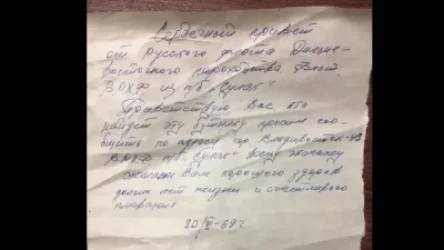 Сердечный привет
от Русского флота Дальне-
восточного пароходства. Флот.
ВРХФ из п/б "Сулак"
Приветствую Вас, кто
найдет эту бутылку просим соо-
бщить по адресу гор. Владивосток-43
ВРХФ п/б "Сулак" всему экипажу
желаем Вам хорошего здоровья
долгих лет жизни и счастливого
плавания
20/VI-69 г